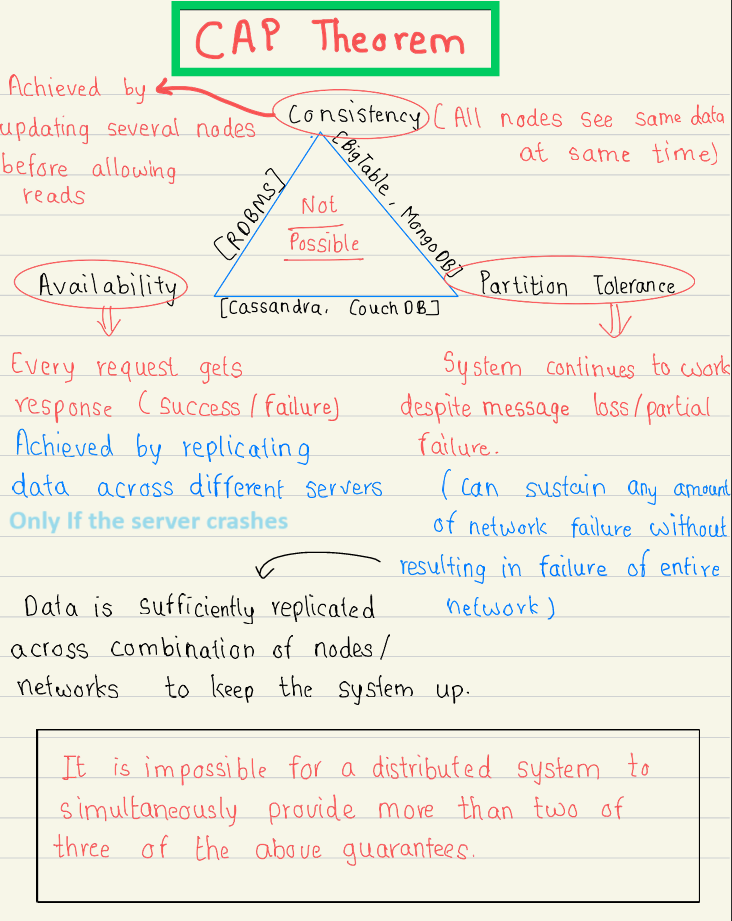 CAP Theorem
Achieved by
updating several nodes
before allowing
reads
Consistency (All nodes see same data
at same time)
[RDBMS]
[BigTable, MongoDB]
Not
Possible
Availability
[Cassandra, CouchDB]
Partition Tolerance
Every request gets
response (success/failure)
Achieved by replicating
data across different servers
Only If the server crashes
System continues to work
despite message loss/partial
failure.
(Can sustain any amount
of network failure without
resulting in failure of entire
network)
Data is sufficiently replicated
across combination of nodes/
networks to keep the system up.
It is impossible for a distributed system to
simultaneously provide more than two of
three of the above guarantees.